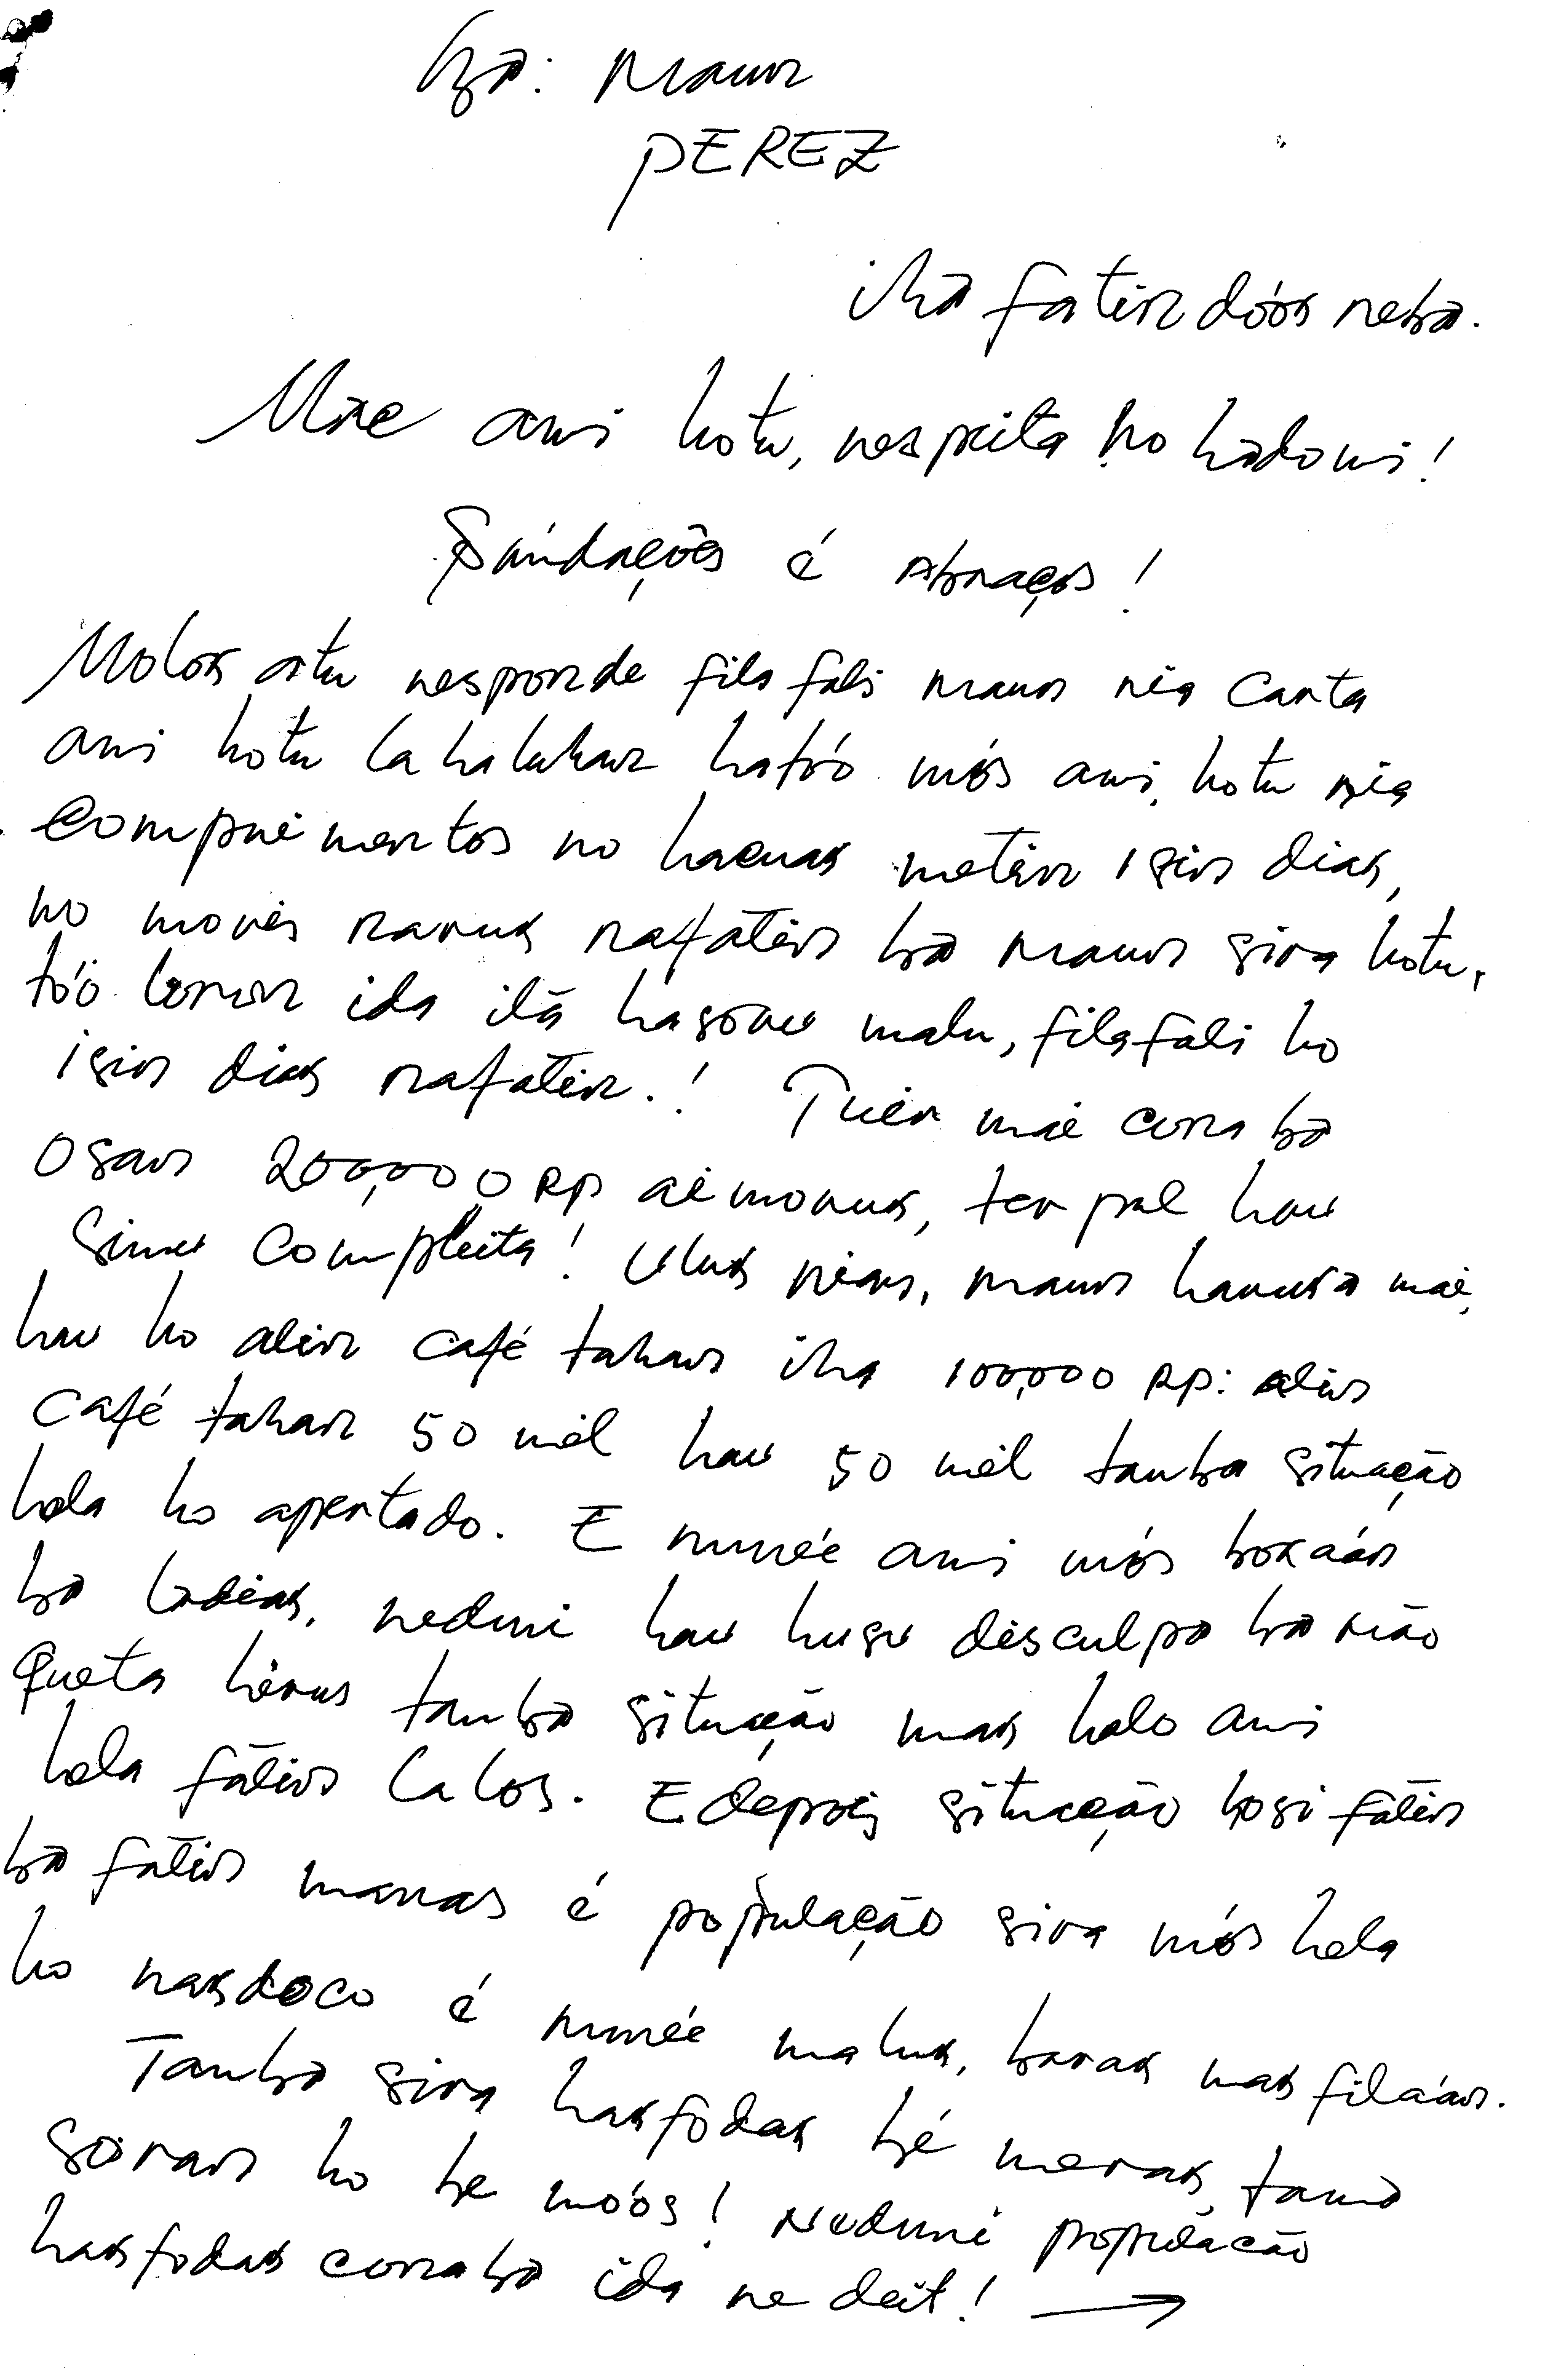 ba: maun
PEREZ
iha fatin dóok neba.
Mãe ami hotu, respeita ho hadomi!
Saúdações é Abraços!
Molok atu responde fila fali maun nia carta
ami hotu la haluhan ható'o mós ami hotu nia
comprimentos no hacuak metin isin diak,
no moris naruk nafatin ba maun sira hotu,
tó'o loron ida itá hasoru malu, fila fali ho
isin diak nafatin.! Tuir mai cona ba
osan 200,000 Rp aimoruk, termal hau
simu completa! Uluk nian, maun haruka mai,
hau ho alin café tahan iha 100,000 Rp: alin
café tahan 50 mil hau 50 mil tamba situação
hela ho apertado. E nuneé ami mós boxáan
ba ladiak, neduni hau husu desculpa ba não
queta hirus tamba situação mak halo ami
hela fátin la los. E depois situação hosi fátin
ba fátin manas é população sira mós hela
ho nakdoco é nuneé maluk, barak mak filáan.
Tamba sira hakfodak bé merak, tama
soran ho be moós! Neduni população
hakfodak cona ba ida ne deit! →